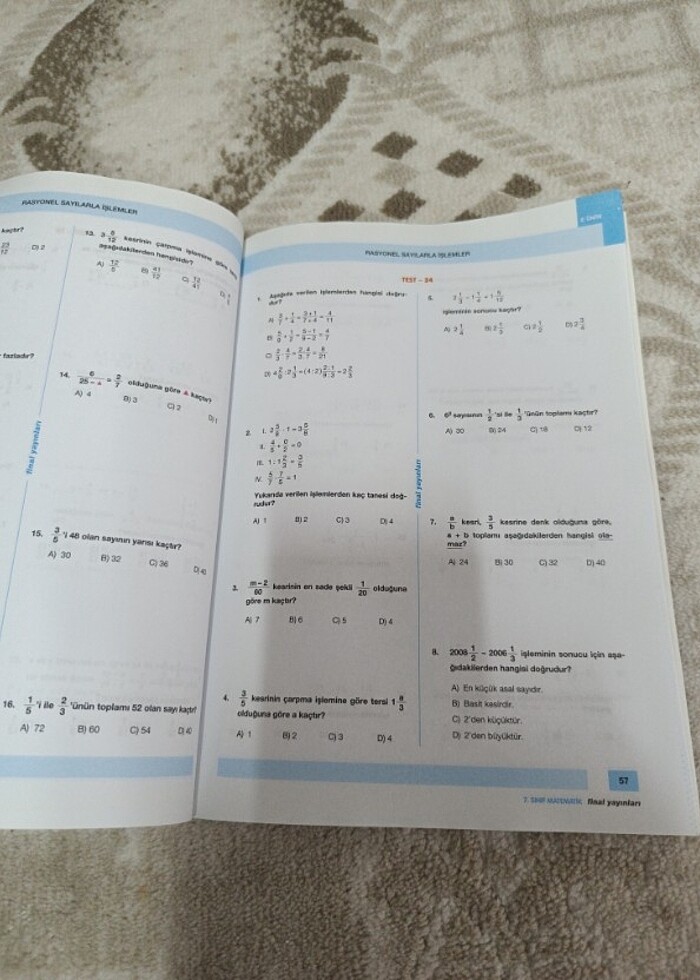 RASYONEL SAYILARLA İŞLEMLER
kaçtır?
23/12 D) 2
fazladır?
13. 3 5/12 kesrinin çarpma işlemine göre
aşağıdakilerden hangisidir?
A) 12/5 B) 41/12 C) 12/41
14. 6/(25 - ▲) = 2/7 olduğuna göre ▲ kaçtır?
A) 4 B) 3 C) 2 D) 1
final yayınları
15. 3/5 'i 48 olan sayının yarısı kaçtır?
A) 30 B) 32 C) 36 D) 40
16. 1/5 'i ile 2/3 'ünün toplamı 52 olan sayı kaçtır?
A) 72 B) 60 C) 54 D) 40
RASYONEL SAYILARLA İŞLEMLER
TEST - 04
1. Aşağıda verilen işlemlerden hangisi doğru-
dur?
A) 3/7 + 1/4 = (3+1)/(7+4) = 4/11
B) 5/9 + 1/2 = (5-1)/(9-2) = 4/7
C) 2/3 · 4/7 = (2·4)/(3·7) = 8/21
2. I.
II.
III.
IV. 5/7 · 7/5 = 1
Yukarıda verilen işlemlerden kaç tanesi doğ-
rudur?
A) 1 B) 2 C) 3 D) 4
3. (m-2)/60 kesrinin en sade şekli 1/20 olduğuna
göre m kaçtır?
A) 7 B) 6 C) 5 D) 4
4. 3/5 kesrinin çarpma işlemine göre tersi 1 a/3
olduğuna göre a kaçtır?
A) 1 B) 2 C) 3 D) 4
final yayınları
5.
işleminin sonucu kaçtır?
A) 2 1/4 B) 2 1/3 C) 2 1/2 D) 2 3/4
6. 6² sayısının 1/2 'si ile 1/3 'ünün toplamı kaçtır?
A) 30 B) 24 C) 18 D) 12
7. a/b kesri, 3/5 kesrine denk olduğuna göre,
a + b toplamı aşağıdakilerden hangisi ola-
maz?
A) 24 B) 30 C) 32 D) 40
8. 2008 1/2 - 2006 1/3 işleminin sonucu için aşa-
ğıdakilerden hangisi doğrudur?
A) En küçük asal sayıdır.
B) Basit kesirdir.
C) 2'den küçüktür.
D) 2'den büyüktür.
57
7. SINIF MATEMATİK final yayınları